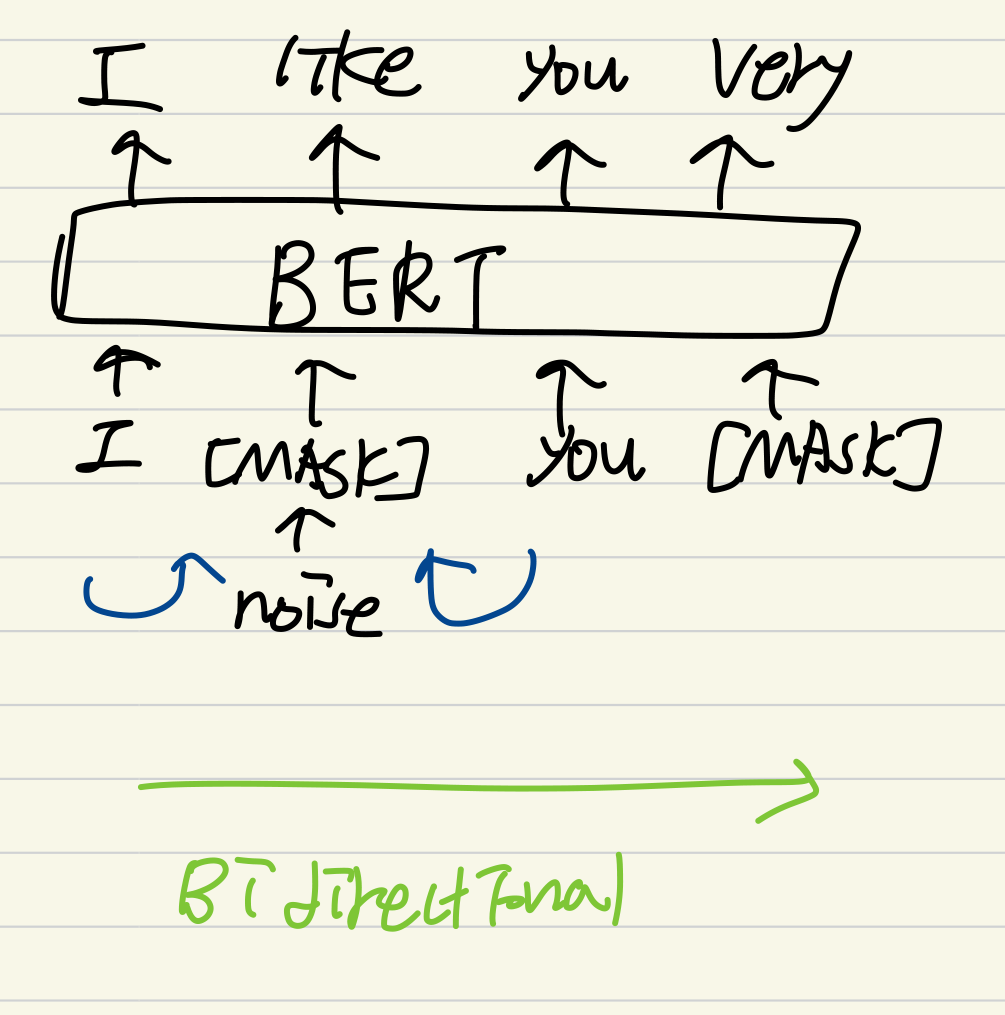 I like you very
BERT
I [MASK] you [MASK]
noise
Bidirectional